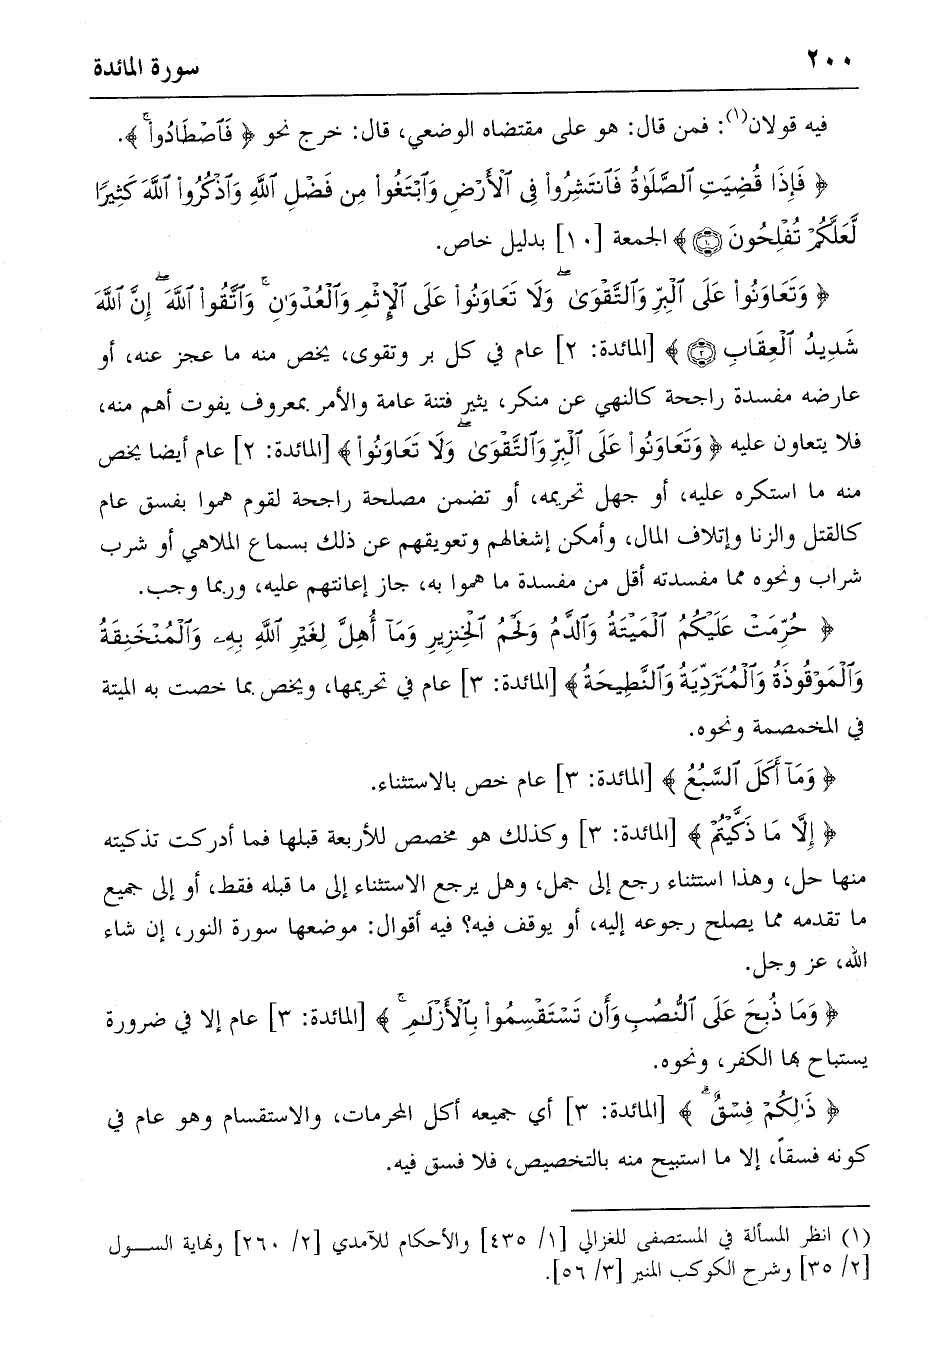 ٢٠٠
سورة المائدة
فيه قولان(١): فمن قال: هو على مقتضاه الوضعي، قال: خرج نحو ﴿ فَٱصْطَادُوا۟ ۚ ﴾.
﴿ فَإِذَا قُضِيَتِ ٱلصَّلَوٰةُ فَٱنتَشِرُوا۟ فِى ٱلْأَرْضِ وَٱبْتَغُوا۟ مِن فَضْلِ ٱللَّهِ وَٱذْكُرُوا۟ ٱللَّهَ كَثِيرًا
لَّعَلَّكُمْ تُفْلِحُونَ ۝١٠ ﴾ الجمعة [١٠] بدليل خاص.
﴿ وَتَعَاوَنُوا۟ عَلَى ٱلْبِرِّ وَٱلتَّقْوَىٰ ۖ وَلَا تَعَاوَنُوا۟ عَلَى ٱلْإِثْمِ وَٱلْعُدْوَٰنِ ۚ وَٱتَّقُوا۟ ٱللَّهَ ۖ إِنَّ ٱللَّهَ
شَدِيدُ ٱلْعِقَابِ ۝٢ ﴾ [المائدة: ٢] عام في كل بر وتقوى، يخص منه ما عجز عنه، أو
عارضه مفسدة راجحة كالنهي عن منكر، يثير فتنة عامة والأمر بمعروف يفوت أهم منه،
فلا يتعاون عليه ﴿ وَتَعَاوَنُوا۟ عَلَى ٱلْبِرِّ وَٱلتَّقْوَىٰ ۖ وَلَا تَعَاوَنُوا۟ ﴾ [المائدة: ٢] عام أيضا يخص
منه ما استكره عليه، أو جهل تحريمه، أو تضمن مصلحة راجحة لقوم هموا بفسق عام
كالقتل والزنا وإتلاف المال، وأمكن إشغالهم وتعويقهم عن ذلك بسماع الملاهي أو شرب
شراب ونحوه مما مفسدته أقل من مفسدة ما هموا به، جاز إعانتهم عليه، وربما وجب.
﴿ حُرِّمَتْ عَلَيْكُمُ ٱلْمَيْتَةُ وَٱلدَّمُ وَلَحْمُ ٱلْخِنزِيرِ وَمَآ أُهِلَّ لِغَيْرِ ٱللَّهِ بِهِۦ وَٱلْمُنْخَنِقَةُ
وَٱلْمَوْقُوذَةُ وَٱلْمُتَرَدِّيَةُ وَٱلنَّطِيحَةُ ﴾ [المائدة: ٣] عام في تحريمها، ويخص بما خصت به الميتة
في المخمصمة ونحوه.
﴿ وَمَآ أَكَلَ ٱلسَّبُعُ ﴾ [المائدة: ٣] عام خص بالاستثناء.
﴿ إِلَّا مَا ذَكَّيْتُمْ ﴾ [المائدة: ٣] وكذلك هو مخصص للأربعة قبلها فما أدركت تذكيته
منها حل، وهذا استثناء رجع إلى جمل، وهل يرجع الاستثناء إلى ما قبله فقط، أو إلى جميع
ما تقدمه مما يصلح رجوعه إليه، أو يوقف فيه؟ فيه أقوال: موضعها سورة النور، إن شاء
الله، عز وجل.
﴿ وَمَا ذُبِحَ عَلَى ٱلنُّصُبِ وَأَن تَسْتَقْسِمُوا۟ بِٱلْأَزْلَٰمِ ۚ ﴾ [المائدة: ٣] عام إلا في ضرورة
يستباح بها الكفر، ونحوه.
﴿ ذَٰلِكُمْ فِسْقٌ ۗ ﴾ [المائدة: ٣] أي جميعه أكل المحرمات، والاستقسام وهو عام في
كونه فسقاً، إلا ما استبيح منه بالتخصيص، فلا فسق فيه.
(١) انظر المسألة في المستصفى للغزالي [١/ ٤٣٥] والأحكام للآمدي [٢/ ٢٦٠] ونهاية الســـول
[٢/ ٣٥] وشرح الكوكب المنير [٣/ ٥٦].